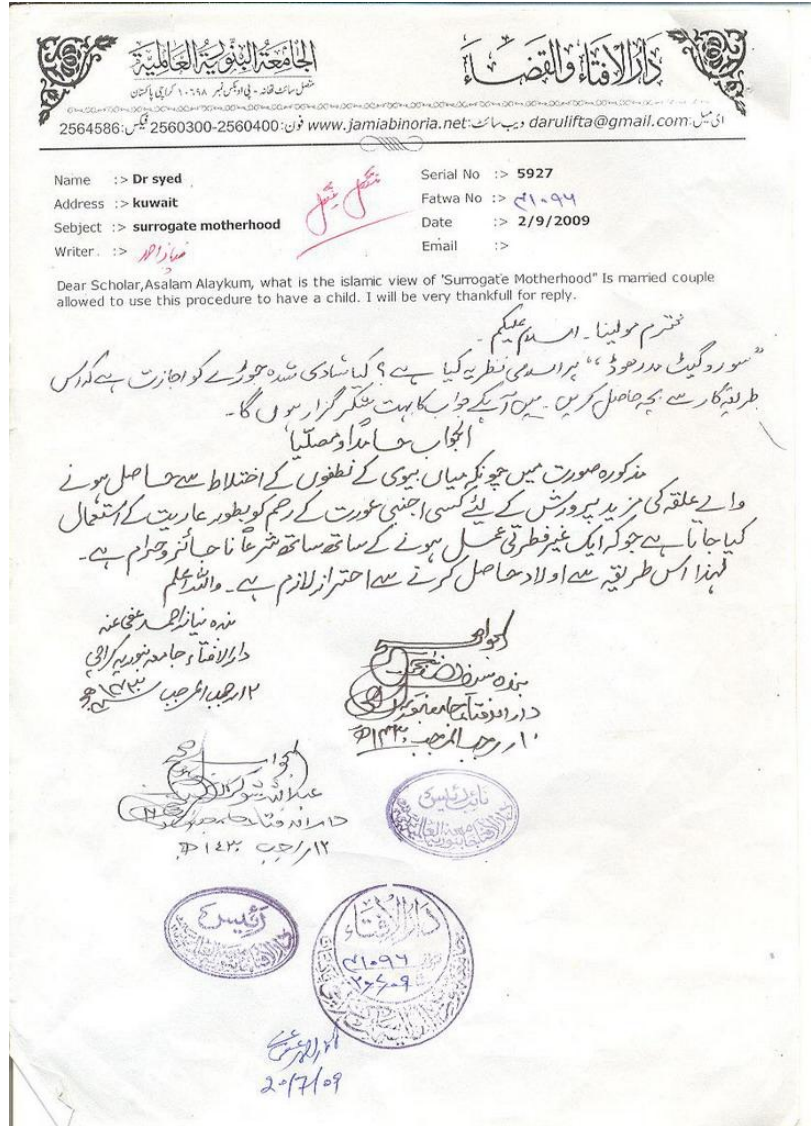 الجامعۃ البنوریۃ العالمیۃ
دارالافتاء والقضاء
متصل سائٹ تھانہ - پی او بکس نمبر ۱۰۶۹۸ کراچی پاکستان
ای میل: darulifta@gmail.com ویب سائٹ: www.jamiabinoria.net فون: 2560300-2560400 فیکس: 2564586
Name :> Dr syed
Serial No :> 5927
Address :> kuwait
Fatwa No :> ۴۱۰۹۶
Sebject :> surrogate motherhood
Date :> 2/9/2009
Writer. :> نیاز احمد
Email :>
Dear Scholar,Asalam Alaykum, what is the islamic view of 'Surrogate Motherhood" Is married couple
allowed to use this procedure to have a child. I will be very thankfull for reply.
محترم مولینا۔ السلام علیکم۔
”سوروگیٹ مدرھوڈ“ پر اسلامی نظریہ کیا ہے؟ کیا شادی شدہ جوڑے کو اجازت ہے کہ اس
طریقہ کار سے بچہ حاصل کریں۔ میں آپکے جواب کا بہت شکر گزار ہوں گا۔
الجواب حامداً ومصلیاً
مذکورہ صورت میں چونکہ میاں بیوی کے نطفوں کے اختلاط سے حاصل ہونے
والے علقہ کی مزید پرورش کے لئے کسی اجنبی عورت کے رحم کو بطور عاریت کے استعمال
کیا جاتا ہے جو کہ ایک غیر فطرتی عمل ہونے کے ساتھ ساتھ شرعاً ناجائز و حرام ہے۔
لہذا اس طریقہ سے اولاد حاصل کرنے سے احتراز لازم ہے۔ واللہ اعلم
بندہ نیاز احمد عفی عنہ
دارالافتاء جامعہ بنوریہ کراچی
۱۲ رجب المرجب ۱۴۳۰ھ
الجواب
بندہ
دارالافتاء جامعہ بنوریہ
۱۰ رجب المرجب ۱۴۳۰ھ
الجواب
عبداللہ شوکت
دارالافتاء جامعہ بنوریہ
۱۲/رجب ۱۴۳۰ھ
نائب رئیس
رئیس
دارالافتاء
۴۱۰۹۶
20/7/09